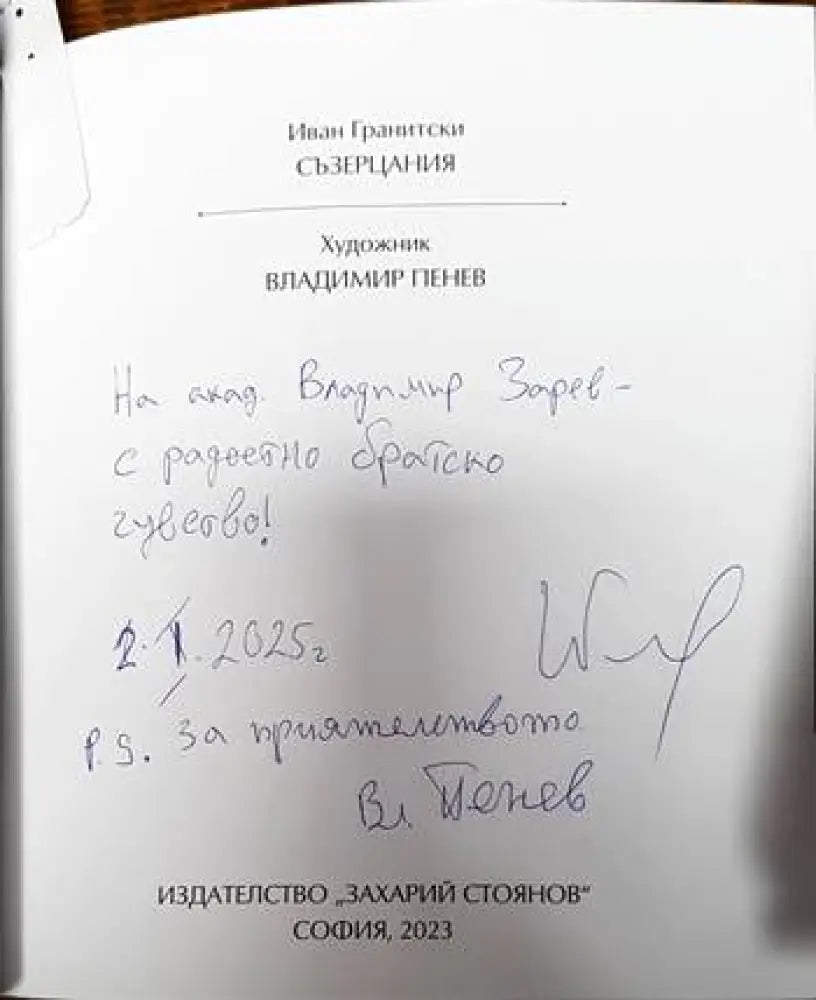 Иван Гранитски
СЪЗЕРЦАНИЯ
Художник
ВЛАДИМИР ПЕНЕВ
На акад. Владимир Зарев –
с радостно братско
чувство!
2.I.2025г
P.S. За приятелството
Вл. Пенев
ИЗДАТЕЛСТВО „ЗАХАРИЙ СТОЯНОВ“
СОФИЯ, 2023